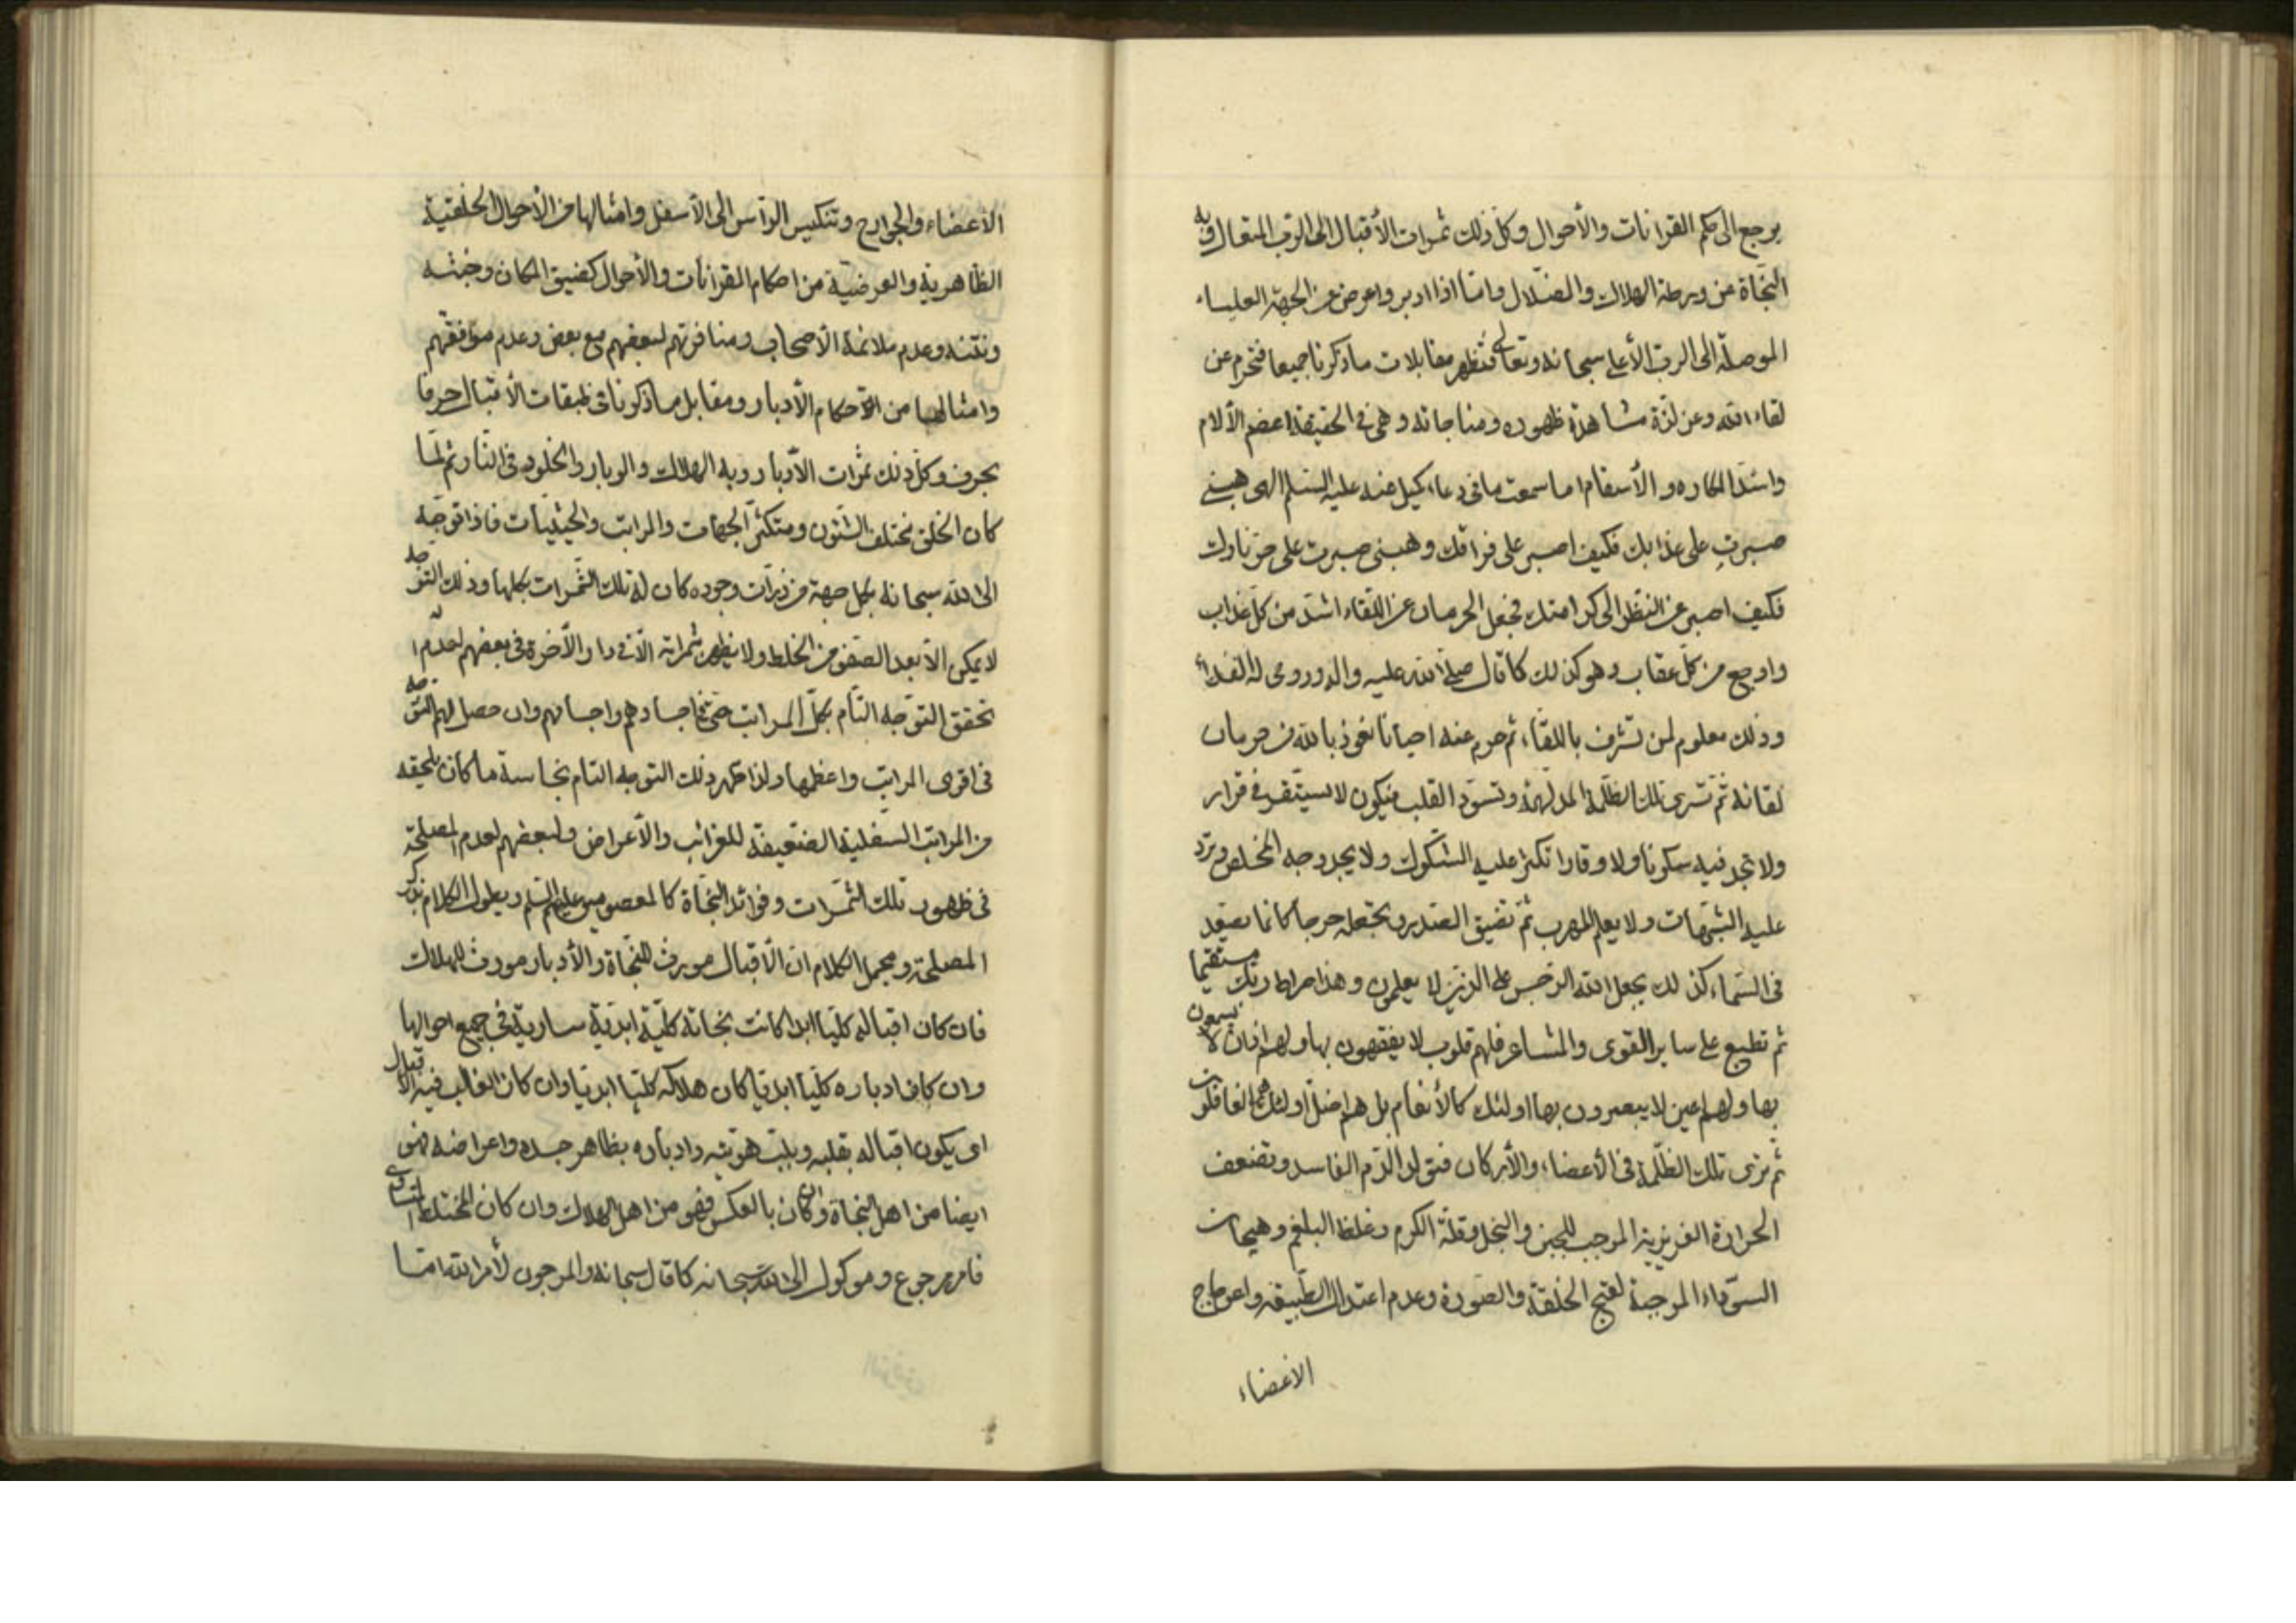 يرجع الى حكم القرانات والأحوال وكل ذلك ثمرات الأقبال الى الرب المتعال وبه
النجاة من ورطة الهلاك والضلال واما اذا ادبر واعرض عن الجهة العلياء
الموصلة الى الرب الأعلى سبحانه وتعالى فتظهر مقابلات ما ذكرنا جميعا فتحرم عن
لقاء الله وعن لذة مشاهدة ظهوره ومناجاته وهي في الحقيقة اعضم الألام
واشد المكاره والأسقام اما سمعت ما في دعاء كميل عنه عليه السلم الهى هبني
صبرت على عذابك فكيف اصبر على فراقك وهبنى صبرت على حر نارك
فكيف اصبر عن النظر الى كرامتك فجعل الحرمان عن اللقاء اشد من كل عذاب
واوجع من كل عقاب وهو كذلك كما قال صلى الله عليه واله وروحى له الفداء
وذلك معلوم لمن تشرف باللقاء ثم حرم عنه احيانا نعوذ بالله من حرمان
لقائه ثم تسرى تلك الظلمة المدلهمة وتسود القلب فيكون لا يستقر في قرار
ولا تجد فيه سكونا ولا وقارا تكثر عليه الشكوك ولا يجد وجه المخلص وترد
عليه الشبهات ولا يعلم المهرب ثم تضيق الصدر وتجعله حرجا كانما يصعد
فى السماء كذلك يجعل الله الرجس على الذين لا يعلمون وهذا صراط ربك مستقيما
ثم تطبع على ساير القوى والمشاعر فلهم قلوب لا يفقهون بها ولهم اذان لا يسمعون
بها ولهم اعين لا يبصرون بها اولئك كالأنعام بل هم اضل اولئك هم الغافلون
ثم ترى تلك الظلمة فى الأعضاء والأركان فتولد الدم الفاسد وتضعف
الحرارة الغريزية الموجب للجبن والبخل وقلة الكرم وغلظ البلغم وهيجان
السوداء الموجبة لقبح الخلقة والصورة وعدم اعتدال الطبيعة واعوجاج
الاعضاء
الأعضاء والجوارح وتنكيس الرأس الى الأسفل وامثالها من الأحوال الخلقية
الظاهرية والعرضية من احكام القرانات والأحوال كضيق المكان وخبثه
ونتنه وعدم ملائمة الأصحاب ومنافرتهم لبعضهم مع بعض وعدم موافقتهم
وامثالها من الأحكام الأدبار ومقابل ما ذكرنا في طبقات الأقبال حرفا
بحرف وكل ذلك ثمرات الأدبار وبه الهلاك والوبار والخلود فى النار ثم لما
كان الخلق مختلف الشئون ومتكثر الجهات والمراتب والحيثيات فاذا توجه
الى الله سبحانه بكل جهة من ذرات وجوده كان له تلك الثمرات بكلها وذلك التوجه
لا يمكن الا بعد الصفو من الخلط ولا يظهر ثمراته الا في دار الأخرة فى بعضهم لعدم
تحقق التوجه التام بكل المراتب حتى في اجسادهم واجسامهم وان حصل لهم التوجه
في اقوى المراتب واعظمها ولذا طهر ذلك التوجه التام نجاسة ما كان يلحقه
من المراتب السفلية الضعيفة للغرائب والأعراض ولبعضهم لعدم المصلحة
فى ظهور تلك الثمرات وفوائد النجاة كالمعصومين عليهم السلم ويطول الكلام بذكر
المصلحة ومجمل الكلام ان الأقبال مورث للنجاة والأدبار مورث للهلاك
فان كان اقباله كليا ابدا كانت نجاته كلية ابدية سارية في جميع احوالها
وان كان ادباره كليا ابديا كان هلاكه كليا ابديا وان كان الغالب فيه الاقبال
اى يكون اقباله بقلبه وبلب هويته وادباره بظاهر جسده واعراضه فهو
ايضا من اهل النجاة وان كان بالعكس فهو من اهل الهلاك وان كان المختلط المتساوى
فامره مرجوع وموكول الى الله سبحانه كما قال سبحانه والمرجون لأمر الله اما